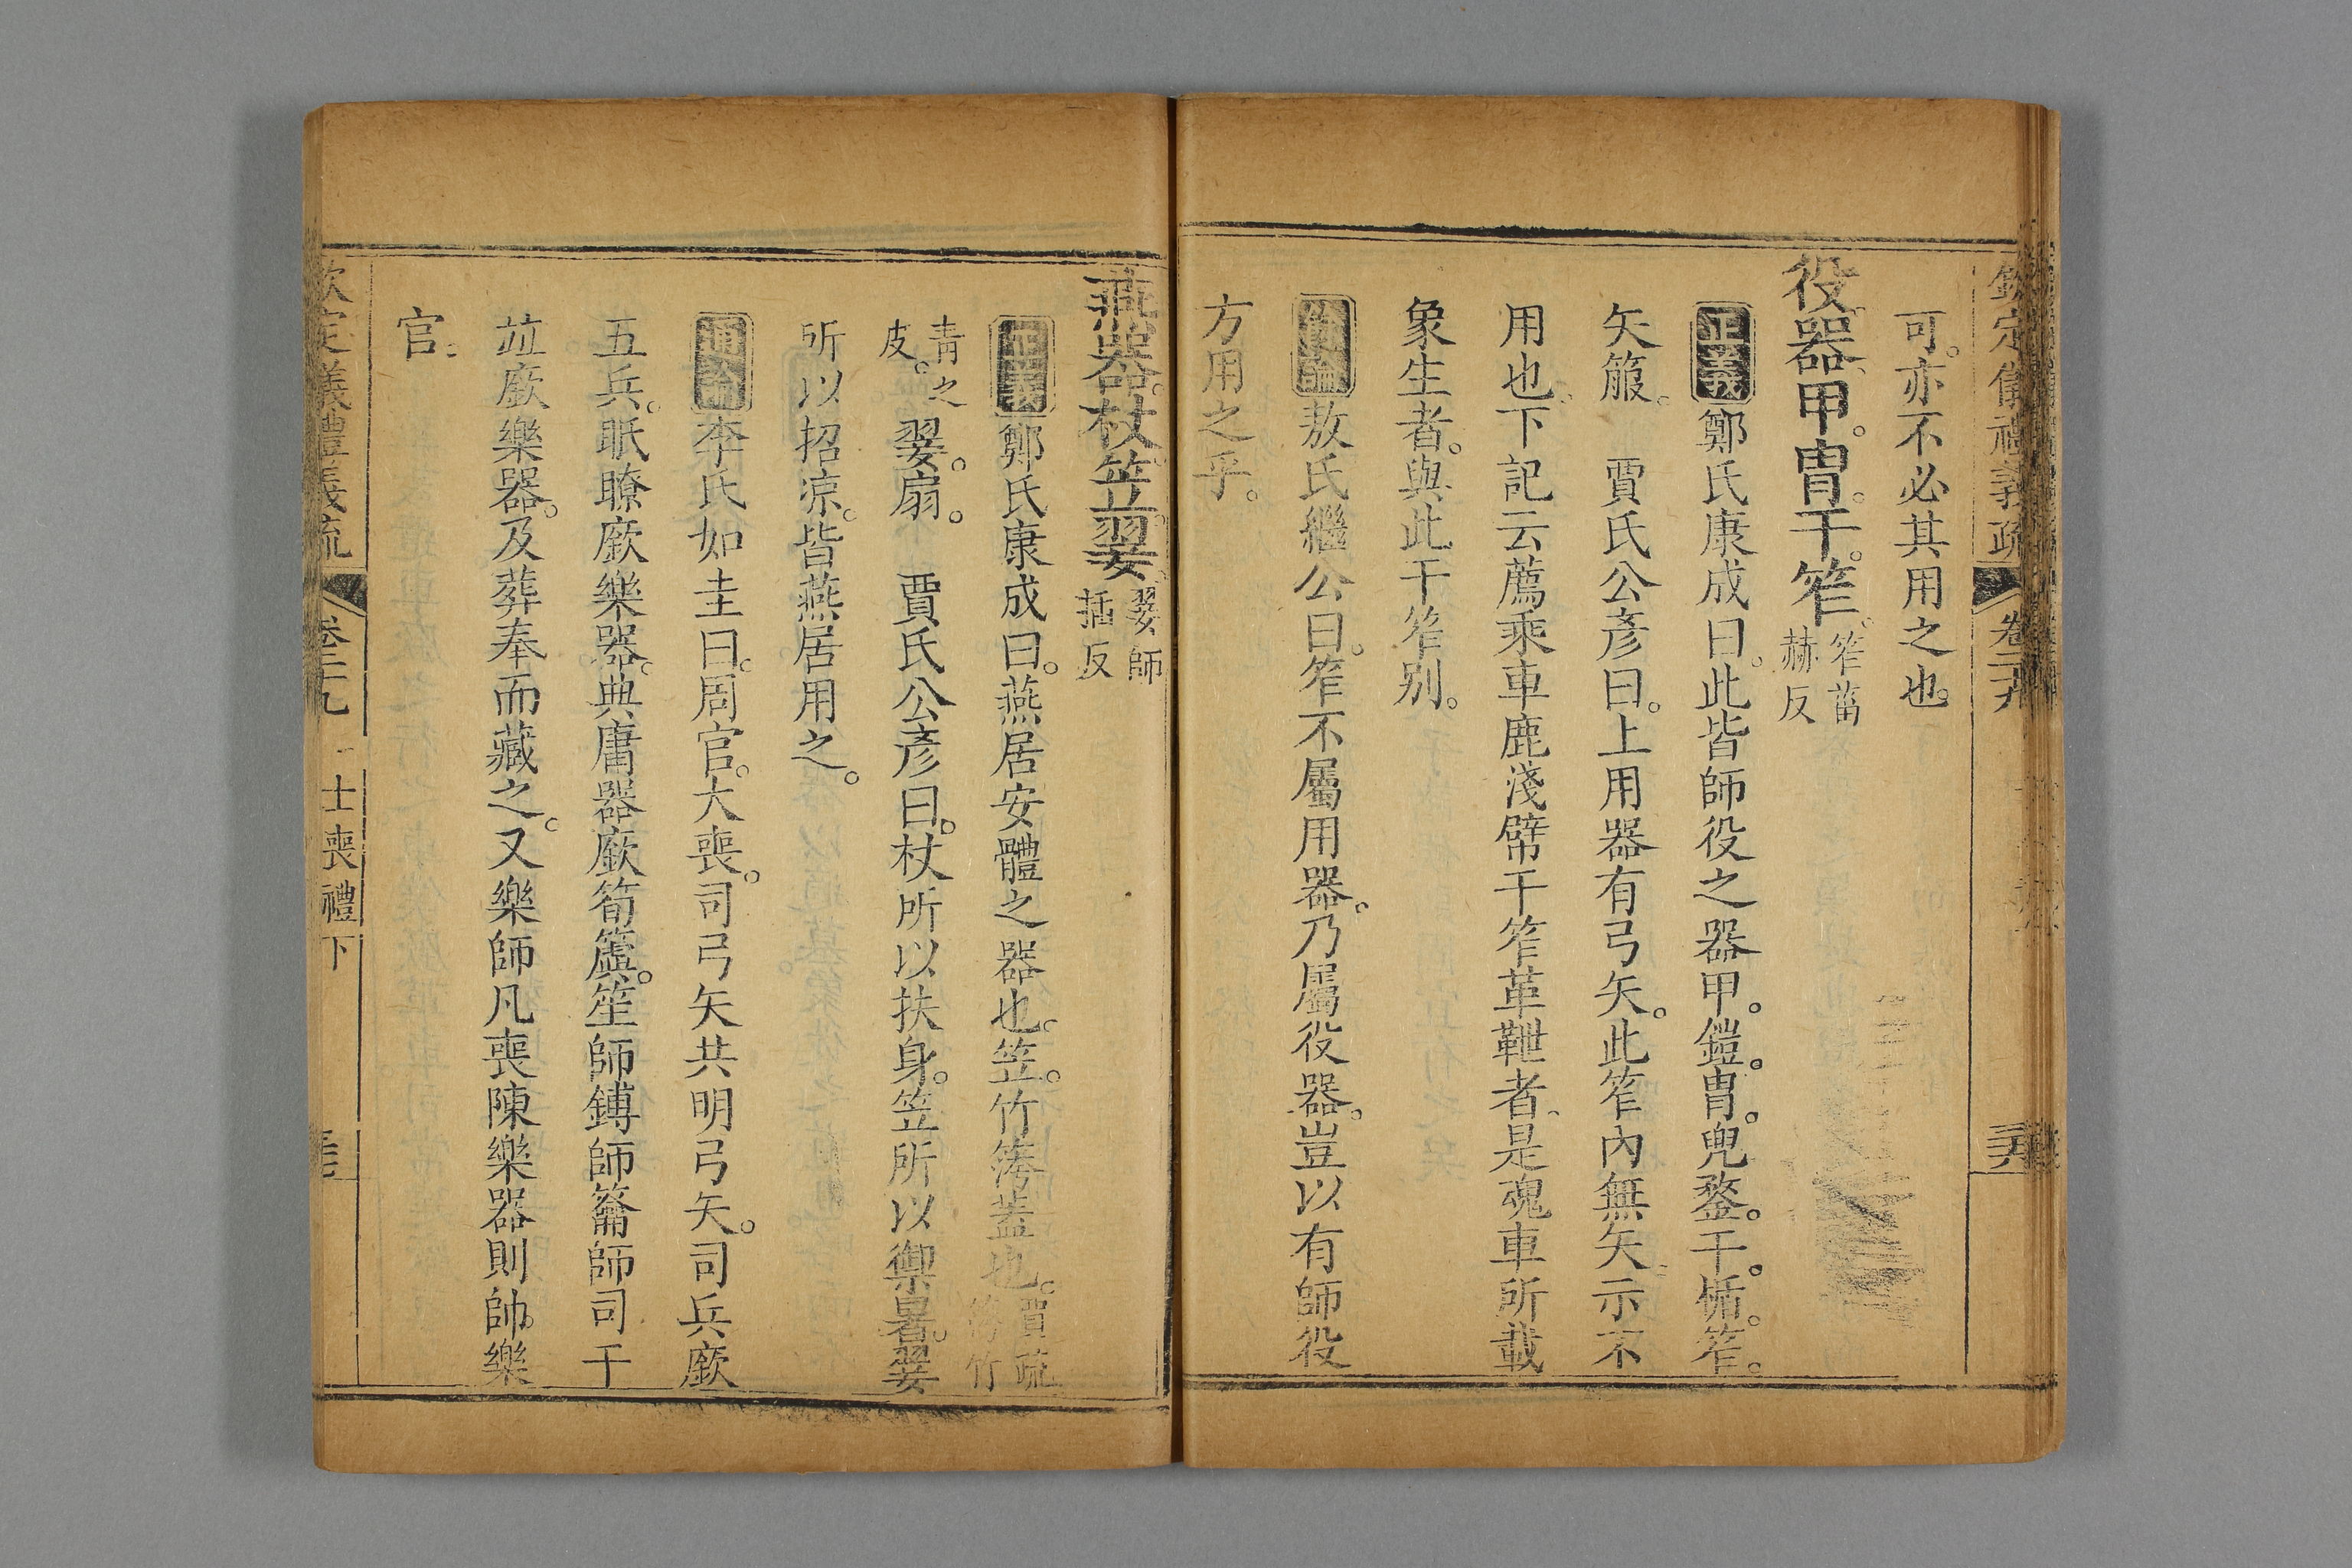 欽定儀禮義疏 卷二十九
可。亦不必其用之也。
役器。甲。冑。干。笮。笮葘赫反
正義鄭氏康成曰。此皆師役之器甲。鎧。冑。兜鍪。干。楯。笮。
矢箙。 賈氏公彥曰。上用器有弓矢。此笮內無矢示不
用也。下記云薦乘車鹿淺幦干笮革靾者。是魂車所載
象生者。與此干笮別。
餘論敖氏繼公曰。笮不屬用器。乃屬役器。豈以有師役
方用之乎。
燕器。杖。笠。翣。翣師插反
正義鄭氏康成曰。燕居安體之器也。笠。竹䈬蓋也。賈疏䈬竹
青之皮。翣。扇。 賈氏公彥曰。杖所以扶身。笠所以禦暑。翣
所以招涼。皆燕居用之。
通論李氏如圭曰。周官。大喪。司弓矢共明弓矢。司兵廞
五兵。眡瞭廞樂器。典庸器廞筍簴。笙師鎛師籥師司干
竝廞樂器。及葬奉而藏之。又樂師凡喪陳樂器則帥。樂
官。
欽定儀禮義疏 卷二十九 士喪禮下